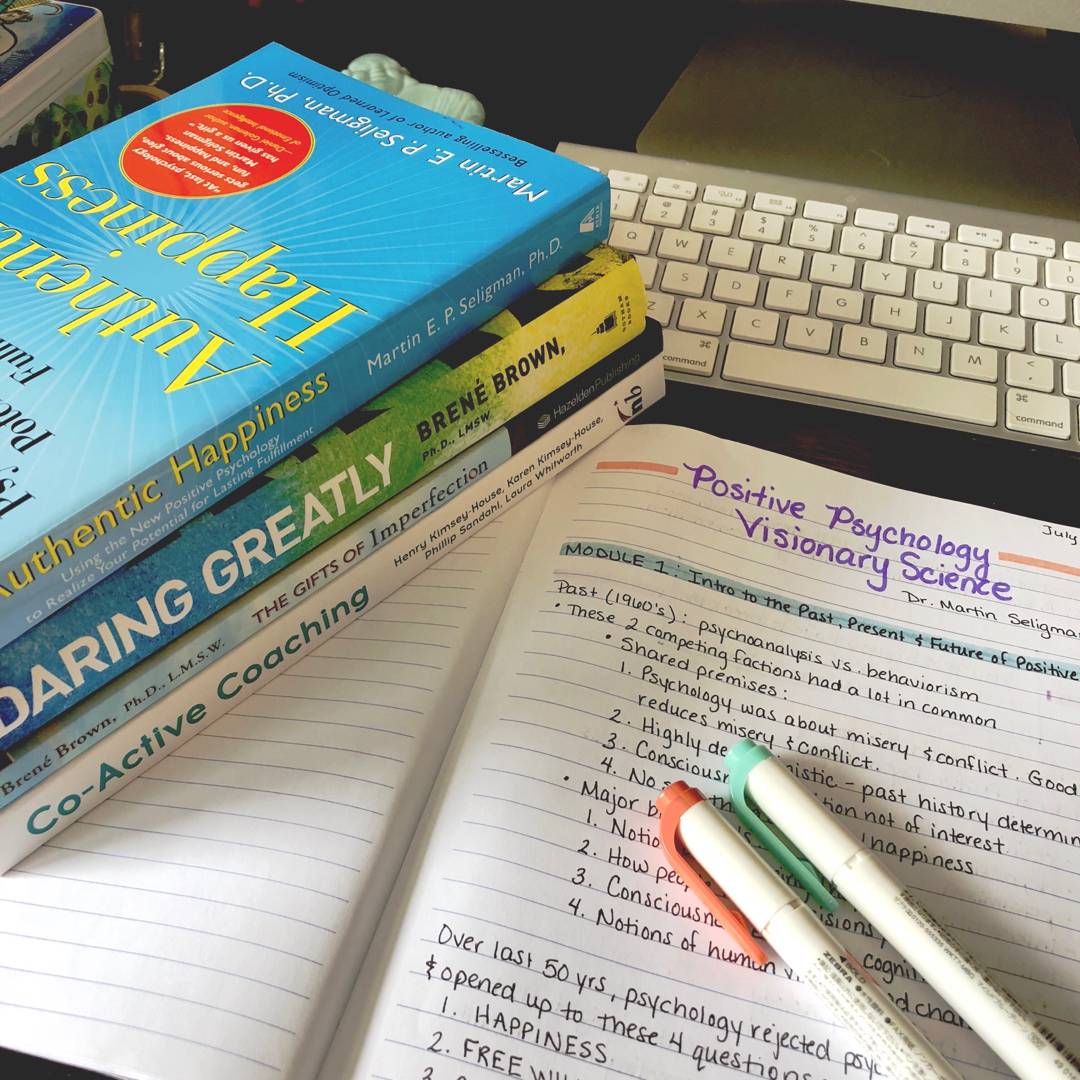 Martin E. P. Seligman, Ph.D.
Bestselling author of Learned Optimism
"At last, psychology
gets serious about glee,
fun, and happiness.
Martin Seligman
has given us a gift."
Daniel Goleman, author
of Emotional Intelligence
Authentic
Happiness
Authentic Happiness
Using the New Positive Psychology
to Realize Your Potential for Lasting Fulfillment
Martin E. P. Seligman, Ph.D.
DARING GREATLY
BRENÉ BROWN,
Ph.D., LMSW
Brené Brown, Ph.D., L.M.S.W.
THE GIFTS OF Imperfection
Hazelden Publishing
Co-Active Coaching
Henry Kimsey-House, Karen Kimsey-House,
Phillip Sandahl, Laura Whitworth
nb
@ # $ % ^ & * (
1 2 3 4 5 6 7 8 9 0
Q W E R T Y U I O
S D F G H J K L
Z X C V B N M <
command
command
July
Positive Psychology
Visionary Science
Dr. Martin Seligma
MODULE 1: Intro to the Past, Present & Future of Positive
Past (1960's): psychoanalysis vs. behaviorism
• These 2 competing factions had a lot in common
• Shared premises:
1. Psychology was about misery & conflict. Good
reduces misery & conflict.
2. Highly de istic - past history determin
3. Consciousn ition not of interest
4. No happiness
• Major b
1. Notio
2. How peo isions
3. Consciousne cogni
4. Notions of human d chan
Over last 50 yrs, psychology rejected psyc
& opened up to these 4 questions
1. HAPPINESS
2. FREE WI
3.
ZEBRA